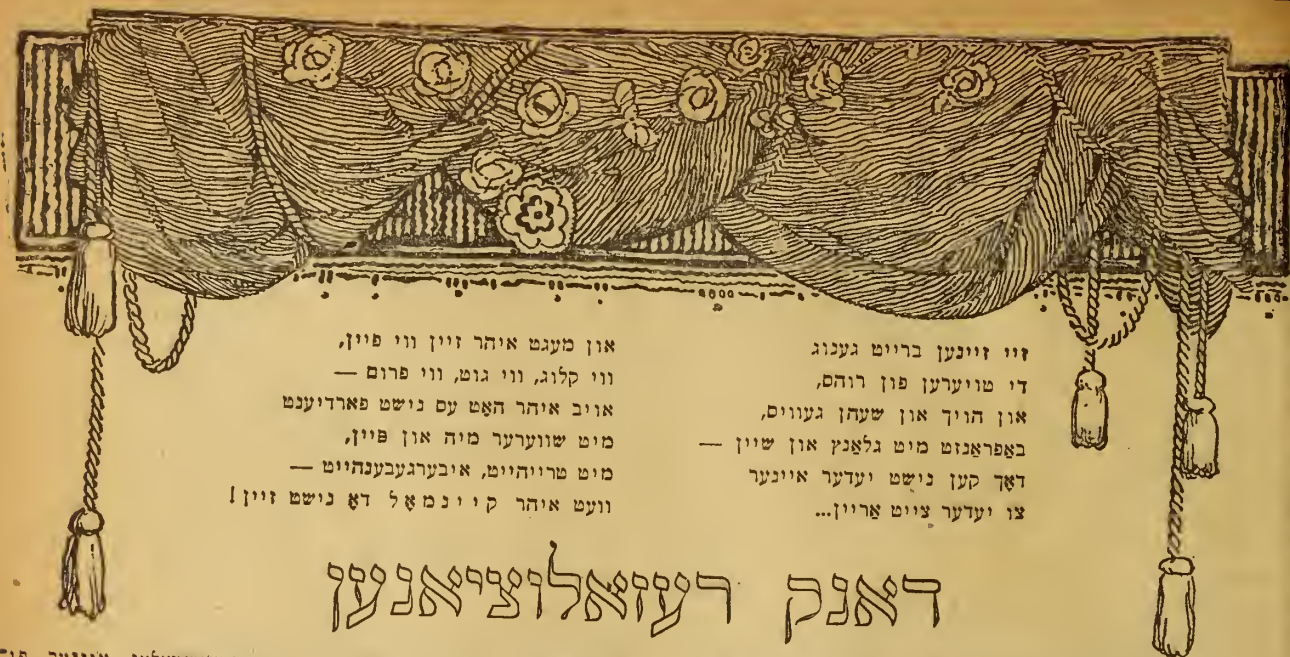 זיי זיינען ברייט גענוג
די טויערען פון רוהם,
און הויך און שעהן געוויס,
באַפראַנזט מיט גלאַנץ און שיין —
דאָך קען נישט יעדער איינער
צו יעדער צייט אַריין...
און מעגט איהר זיין ווי פיין,
ווי קלוג, ווי גוט, ווי פרום —
אויב איהר האָט עס נישט פארדיענט
מיט שווערער מיה און פּיין,
מיט טרייהייט, איבערגעבענהייט —
וועט איהר קיינמאָל דאָ נישט זיין!
דאנק רעזאָלוציאנען